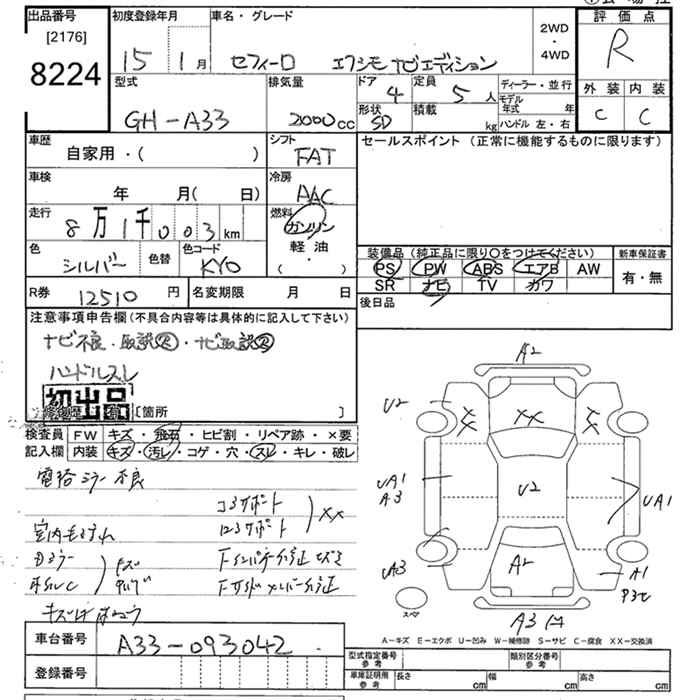 出品番号
[2176]
8224
初度登録年月
15年1月
車名・グレード
セフィーロ エクシモ ナビエディション
2WD
・
4WD
評価点
R
外装 内装
C C
型式
GH-A33
排気量
2000cc
ドア
4
形状
SD
定員
5人
積載
kg
ディーラー・並行
モデル年式 年
ハンドル 左・右
車歴
自家用・( )
シフト
FAT
セールスポイント (正常に機能するものに限ります)
車検
年 月( 日)
冷房
AAC
走行
8万1千003km
燃料
ガソリン
軽・油
( ・ )
色
シルバー
色替
色コード
KY0
装備品 (純正品に限り○をつけてください)
PS PW ABS エアB AW
SR ナビ TV カワ
新車保証書
有・無
R券
12510円
名変期限 月 日
後日品
注意事項申告欄 (不具合内容等は具体的に記入して下さい)
ナビ不良・取説・ナビ取説
ハンドルスレ
初出品
修復歴 有 [箇所 ]
検査員記入欄
FW キズ・飛石・ヒビ割・リペア跡・×要
内装 キズ・汚レ・コゲ・穴・スレ・キレ・破レ
電格ミラー不良
コアサポート
XX
A2
U2
XX
XX
XX
UA1
A3
U2
UA1
UA3
A2
A1
スペア
A3
A-キズ E-エクボ U-凹み W-補修跡 S-サビ C-腐食 XX-交換済
車台番号
A33-093042
登録番号
型式指定番号
参考
類別区分番号
参考
車庫証明用
参考
長さ cm
幅 cm
高さ cm